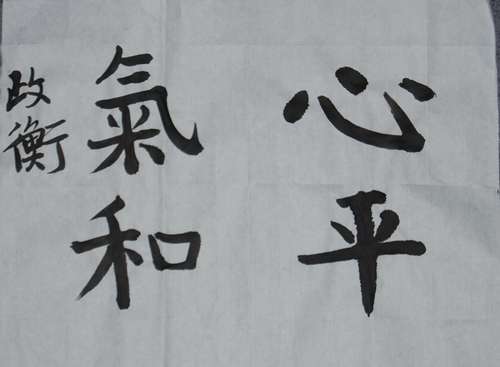 心平
氣和
政衡